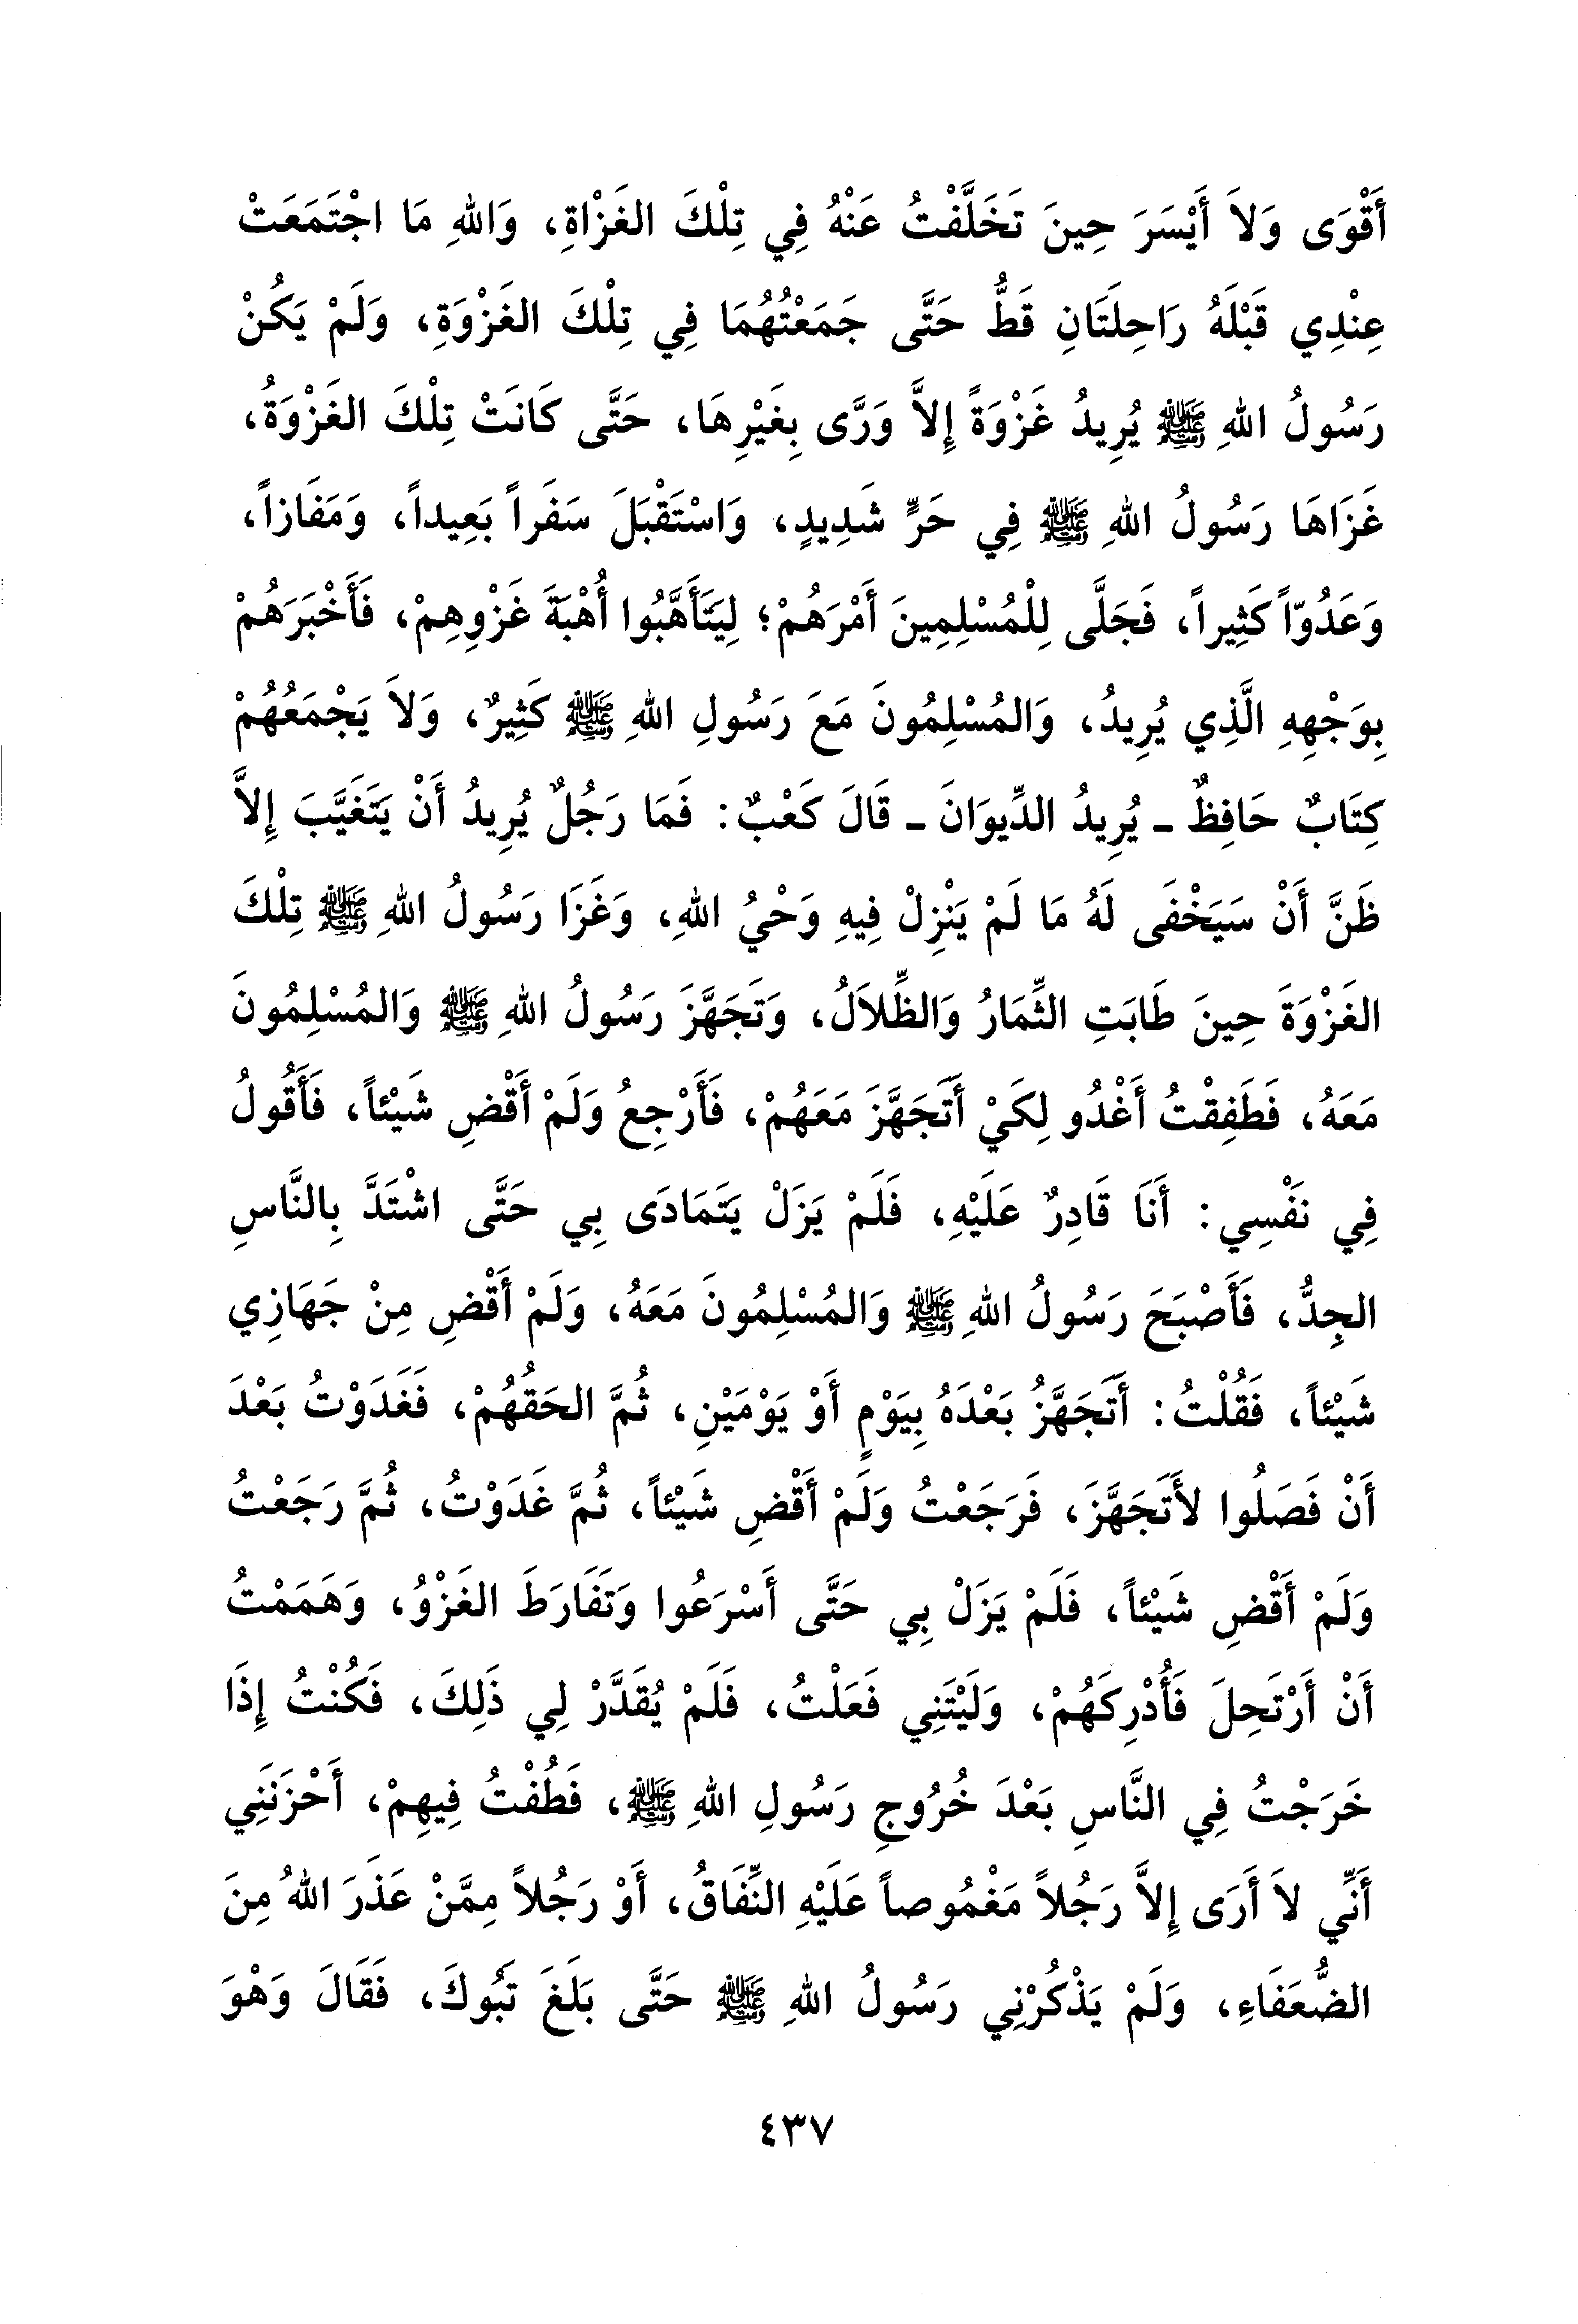 أَقْوَى وَلاَ أَيْسَرَ حِينَ تَخَلَّفْتُ عَنْهُ فِي تِلْكَ الغَزْاةِ، وَاللهِ مَا اجْتَمَعَتْ
عِنْدِي قَبْلَهُ رَاحِلَتَانِ قَطُّ حَتَّى جَمَعْتُهُمَا فِي تِلْكَ الغَزْوَةِ، وَلَمْ يَكُنْ
رَسُولُ اللهِ ﷺ يُرِيدُ غَزْوَةً إِلاَّ وَرَّى بِغَيْرِهَا، حَتَّى كَانَتْ تِلْكَ الغَزْوَةُ،
غَزَاهَا رَسُولُ اللهِ ﷺ فِي حَرٍّ شَدِيدٍ، وَاسْتَقْبَلَ سَفَراً بَعِيداً، وَمَفَازاً،
وَعَدُوّاً كَثِيراً، فَجَلَّى لِلْمُسْلِمِينَ أَمْرَهُمْ؛ لِيَتَأَهَّبُوا أُهْبَةَ غَزْوِهِمْ، فَأَخْبَرَهُمْ
بِوَجْهِهِ الَّذِي يُرِيدُ، وَالمُسْلِمُونَ مَعَ رَسُولِ اللهِ ﷺ كَثِيرٌ، وَلاَ يَجْمَعُهُمْ
كِتَابٌ حَافِظٌ ـ يُرِيدُ الدِّيوَانَ ـ قَالَ كَعْبٌ: فَمَا رَجُلٌ يُرِيدُ أَنْ يَتَغَيَّبَ إِلاَّ
ظَنَّ أَنْ سَيَخْفَى لَهُ مَا لَمْ يَنْزِلْ فِيهِ وَحْيُ اللهِ، وَغَزَا رَسُولُ اللهِ ﷺ تِلْكَ
الغَزْوَةَ حِينَ طَابَتِ الثِّمَارُ وَالظِّلاَلُ، وَتَجَهَّزَ رَسُولُ اللهِ ﷺ وَالمُسْلِمُونَ
مَعَهُ، فَطَفِقْتُ أَغْدُو لِكَيْ أَتَجَهَّزَ مَعَهُمْ، فَأَرْجِعُ وَلَمْ أَقْضِ شَيْئاً، فَأَقُولُ
فِي نَفْسِي: أَنَا قَادِرٌ عَلَيْهِ، فَلَمْ يَزَلْ يَتَمَادَى بِي حَتَّى اشْتَدَّ بِالنَّاسِ
الجِدُّ، فَأَصْبَحَ رَسُولُ اللهِ ﷺ وَالمُسْلِمُونَ مَعَهُ، وَلَمْ أَقْضِ مِنْ جَهَازِي
شَيْئاً، فَقُلْتُ: أَتَجَهَّزُ بَعْدَهُ بِيَوْمٍ أَوْ يَوْمَيْنِ، ثُمَّ الحَقُهُمْ، فَغَدَوْتُ بَعْدَ
أَنْ فَصَلُوا لأَتَجَهَّزَ، فَرَجَعْتُ وَلَمْ أَقْضِ شَيْئاً، ثُمَّ غَدَوْتُ، ثُمَّ رَجَعْتُ
وَلَمْ أَقْضِ شَيْئاً، فَلَمْ يَزَلْ بِي حَتَّى أَسْرَعُوا وَتَفَارَطَ الغَزْوُ، وَهَمَمْتُ
أَنْ أَرْتَحِلَ فَأُدْرِكَهُمْ، وَلَيْتَنِي فَعَلْتُ، فَلَمْ يُقَدَّرْ لِي ذَلِكَ، فَكُنْتُ إِذَا
خَرَجْتُ فِي النَّاسِ بَعْدَ خُرُوجِ رَسُولِ اللهِ ﷺ، فَطُفْتُ فِيهِمْ، أَحْزَنَنِي
أَنِّي لاَ أَرَى إِلاَّ رَجُلاً مَغْمُوصاً عَلَيْهِ النِّفَاقُ، أَوْ رَجُلاً مِمَّنْ عَذَرَ اللهُ مِنَ
الضُّعَفَاءِ، وَلَمْ يَذْكُرْنِي رَسُولُ اللهِ ﷺ حَتَّى بَلَغَ تَبُوكَ، فَقَالَ وَهْوَ
٤٣٧